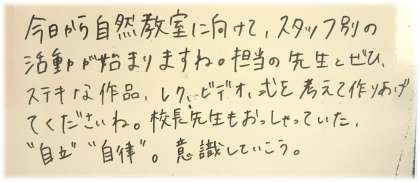 今日から自然教室に向けて、スタッフ別の
活動が始まりますね。担当の先生とぜひ、
ステキな作品、レク、ビデオ、式を考えて作りあげ
てくださいね。校長先生もおっしゃっていた、
"自立" "自律"。意識していこう。